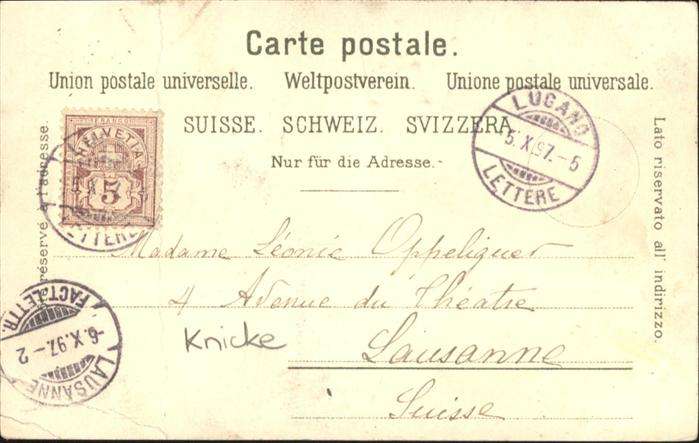 Carte postale.
Union postale universelle. Weltpostverein. Unione postale universale.
SUISSE. SCHWEIZ. SVIZZERA
Nur für die Adresse.
réservé à l'adresse.
Lato riservato all' indirizzo.
HELVETIA
5
LETTERE
LUGANO
5.X.97.-5
LETTERE
Madame Léonie Oppeliguer
4 Avenue du Théatre
Knicke
Lausanne
Suisse
FACT.LETTR.
-6.X.97.-2
LAUSANNE